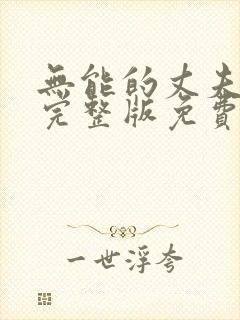 無能的丈夫
完整版免費
一世浮夸